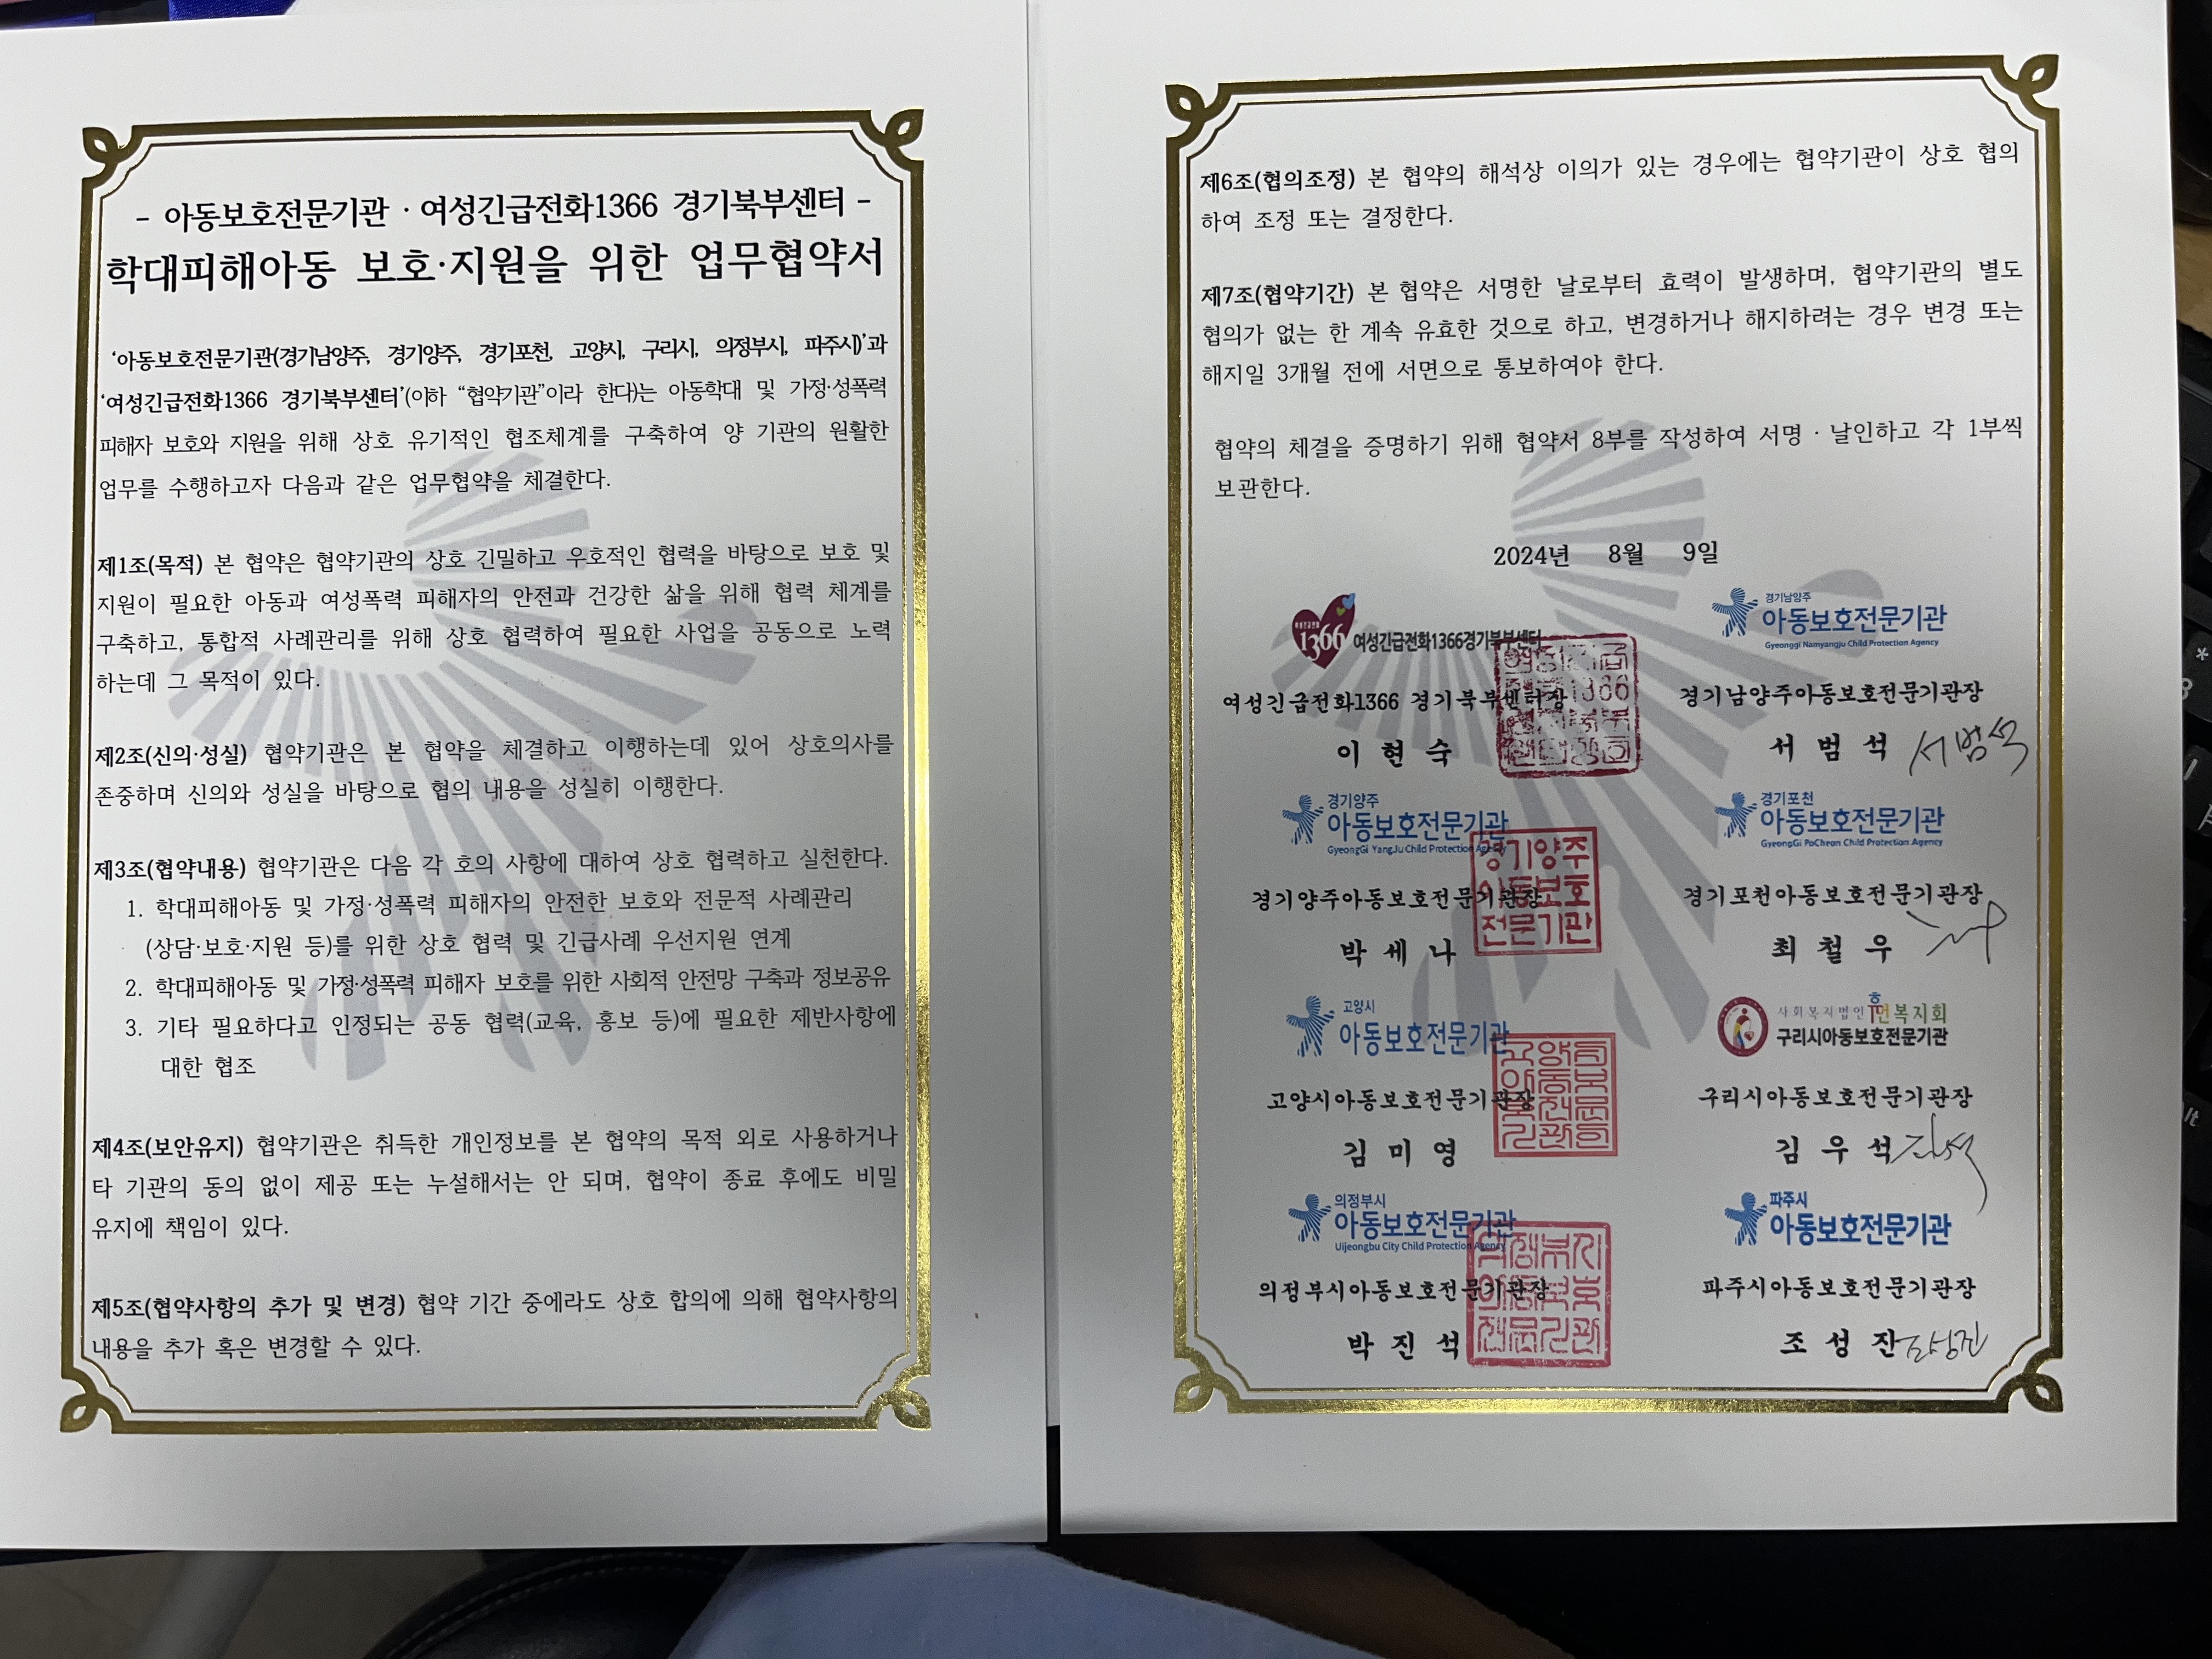 - 아동보호전문기관 · 여성긴급전화1366 경기북부센터 -
학대피해아동 보호·지원을 위한 업무협약서
'아동보호전문기관(경기남양주, 경기양주, 경기포천, 고양시, 구리시, 의정부시, 파주시)'과
'여성긴급전화1366 경기북부센터'(이하 "협약기관"이라 한다)는 아동학대 및 가정·성폭력
피해자 보호와 지원을 위해 상호 유기적인 협조체계를 구축하여 양 기관의 원활한
업무를 수행하고자 다음과 같은 업무협약을 체결한다.
제1조(목적) 본 협약은 협약기관의 상호 긴밀하고 우호적인 협력을 바탕으로 보호 및
지원이 필요한 아동과 여성폭력 피해자의 안전과 건강한 삶을 위해 협력 체계를
구축하고, 통합적 사례관리를 위해 상호 협력하여 필요한 사업을 공동으로 노력
하는데 그 목적이 있다.
제2조(신의·성실) 협약기관은 본 협약을 체결하고 이행하는데 있어 상호의사를
존중하며 신의와 성실을 바탕으로 협의 내용을 성실히 이행한다.
제3조(협약내용) 협약기관은 다음 각 호의 사항에 대하여 상호 협력하고 실천한다.
1. 학대피해아동 및 가정·성폭력 피해자의 안전한 보호와 전문적 사례관리
(상담·보호·지원 등)를 위한 상호 협력 및 긴급사례 우선지원 연계
2. 학대피해아동 및 가정·성폭력 피해자 보호를 위한 사회적 안전망 구축과 정보공유
3. 기타 필요하다고 인정되는 공동 협력(교육, 홍보 등)에 필요한 제반사항에
대한 협조
제4조(보안유지) 협약기관은 취득한 개인정보를 본 협약의 목적 외로 사용하거나
타 기관의 동의 없이 제공 또는 누설해서는 안 되며, 협약이 종료 후에도 비밀
유지에 책임이 있다.
제5조(협약사항의 추가 및 변경) 협약 기간 중에라도 상호 합의에 의해 협약사항의
내용을 추가 혹은 변경할 수 있다.
제6조(협의조정) 본 협약의 해석상 이의가 있는 경우에는 협약기관이 상호 협의
하여 조정 또는 결정한다.
제7조(협약기간) 본 협약은 서명한 날로부터 효력이 발생하며, 협약기관의 별도
협의가 없는 한 계속 유효한 것으로 하고, 변경하거나 해지하려는 경우 변경 또는
해지일 3개월 전에 서면으로 통보하여야 한다.
협약의 체결을 증명하기 위해 협약서 8부를 작성하여 서명 · 날인하고 각 1부씩
보관한다.
2024년 8월 9일
1366 여성긴급전화1366경기북부센터
여성긴급전화1366 경기북부센터장
이 현 숙
경기남양주
아동보호전문기관
Gyeonggi Namyangju Child Protection Agency
경기남양주아동보호전문기관장
서 범 석 서범석
경기양주
아동보호전문기관
GyeongGi YangJu Child Protection Agency
경기양주아동보호전문기관장
박 세 나
경기양주
아동보호
전문기관
경기포천
아동보호전문기관
GyeongGi PoCheon Child Protection Agency
경기포천아동보호전문기관장
최 철 우
고양시
아동보호전문기관
고양시아동보호전문기관장
김 미 영
사회복지법인 휴먼복지회
구리시아동보호전문기관
구리시아동보호전문기관장
김 우 석
의정부시
아동보호전문기관
Uijeongbu City Child Protection Agency
의정부시아동보호전문기관장
박 진 석
파주시
아동보호전문기관
파주시아동보호전문기관장
조 성 진 조성진